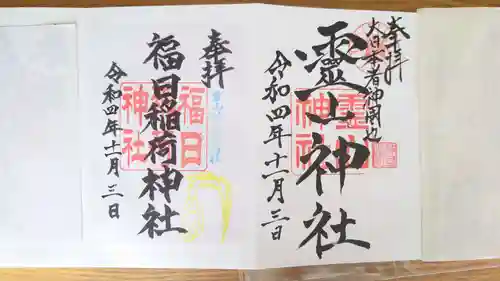 奉拝
大日本者神國也
靈山神社
令和四年十一月三日
靈山神社
奉拝
福田稲荷神社
令和四年十一月三日
福田神社